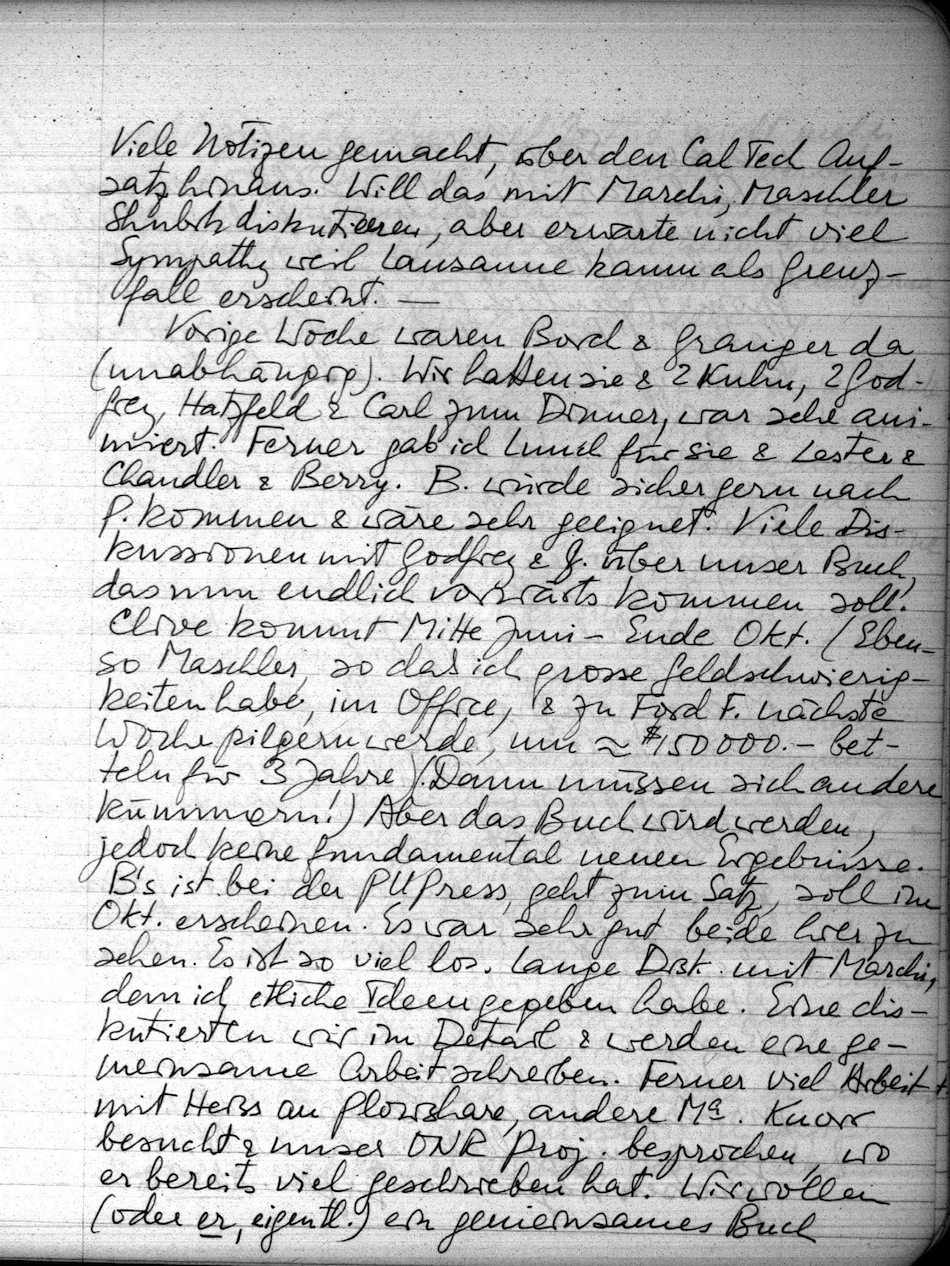 Viele Notizen gemacht, über den Cal Tech Auf-
satz hinaus. Will das mit Marchi, Maschler
Shubik diskutieren, aber erwarte nicht viel
Sympathy weil Lausanne kaum als Grenz-
fall erscheint. —
Vorige Woche waren Borch & Granger da
(unabhängig). Wir hatten sie & 2 Kuhn, 2 God-
frey, Hatzfeld & Carl zum Dinner, war sehr ani-
miert. Ferner gab ich Lunch für sie & Lester &
Chandler & Berry. B. würde sicher gern nach
P. kommen & wäre sehr geeignet. Viele Dis-
kussionen mit Godfrey & G. über unser Buch,
das nun endlich vorwärts kommen soll.
Clive kommt Mitte Juni – Ende Okt. (Eben-
so Maschler, so daß ich grosse Geldschwierig-
keiten habe, im Office, & zu Ford F. nächste
Woche pilgern werde, um ≈ $150000.– bet-
teln für 3 Jahre). (Dann müssen sich andere
kümmern!) Aber das Buch wird werden,
jedoch keine fundamental neuen Ergebnisse.
B's ist bei der PUPress, geht zum Satz, soll im
Okt. erscheinen. Es war sehr gut beide hier zu
sehen. Es ist so viel los. Lange Disk. mit Marchi,
dem ich etliche Ideen gegeben habe. Eine dis-
kutierten wir im Detail & werden eine ge-
meinsame Arbeit schreiben. Ferner viel Arbeit
mit Heiss an Plowshare, andere Ma. Knorr
besucht & unser ONR Proj. besprochen, wo
er bereits viel geschrieben hat. Wir wollen
(oder er, eigentl.) ein gemeinsames Buch